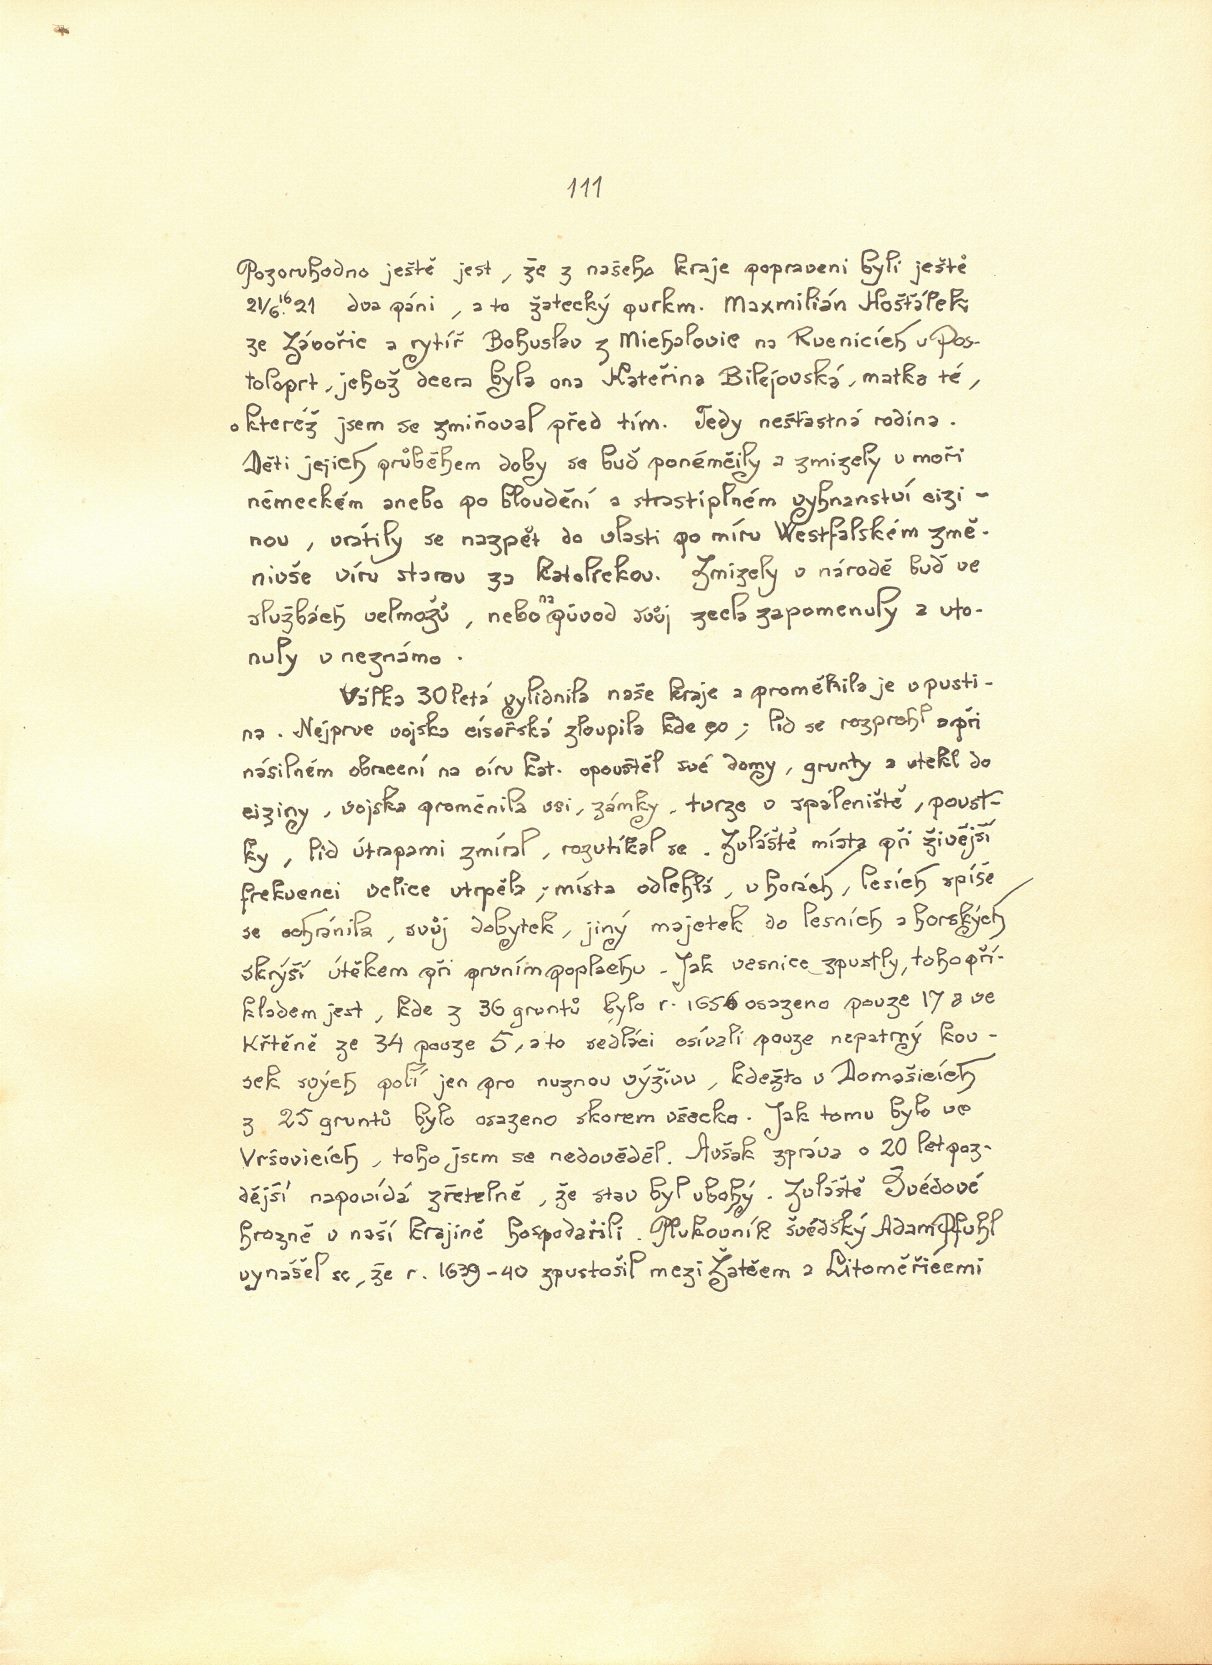 111
Pozoruhodno ještě jest, že z našeho kraje popraveni byli ještě
21/6.1621 dva páni, a to žatecký purkm. Maxmilián Hošťálek
ze Závořic a rytíř Bohuslav z Michalovic na Rvenicích u Pos-
toloprt, jehož dcera byla ona Kateřina Bilejovská, matka té,
o kteréž jsem se zmiňoval před tím. Tedy nešťastná rodina.
Děti jejich průběhem doby se buď poněmčily a zmizely v moři
německém anebo po bloudění a strastiplném vyhnanství cizi-
nou, vrátily se nazpět do vlasti po míru Westfalském změ-
nivše víru starou za katolickou. Zmizely v národě buď ve
službách velmožů, nebo na původ svůj zcela zapomenuly a uto-
nuly v neznámo.
Válka 30letá vylidnila naše kraje a proměnila je v pusti-
na. Nejprve vojska císařská zloupila kde co; lid se rozprchl a při
násilném obracení na víru kat. opouštěl své domy, grunty a utekl do
ciziny, vojska proměnila vsi, zámky, tvrze v spáleniště, poust-
ky, lid útrapami zmíral, rozutíkal se. Zvláště místa při živější
frekvenci velice utrpěla; místa odlehlá, v horách, lesích spíše
se ochránila, svůj dobytek, jiný majetek do lesních a horských
skrýší útěkem při prvním poplachu. Jak vesnice zpustly, toho pří-
kladem jest, kde z 36 gruntů bylo r. 1656 osazeno pouze 17 a ve
Křtěně ze 34 pouze 5, a to sedláci osívali pouze nepatrný kou-
sek svých polí jen pro nuznou výživu, kdežto v Domašicích
z 25 gruntů bylo osazeno skorem všecko. Jak tomu bylo ve
Vršovicích, toho jsem se nedověděl. Avšak zpráva o 20 let poz-
dější napovídá zřetelně, že stav byl ubohý. Zvláště Švédové
hrozně v naší krajině hospodařili. Plukovník švédský Adam Pfuhl
vynášel se, že r. 1639-40 zpustošil mezi Žatcem a Litoměřicemi